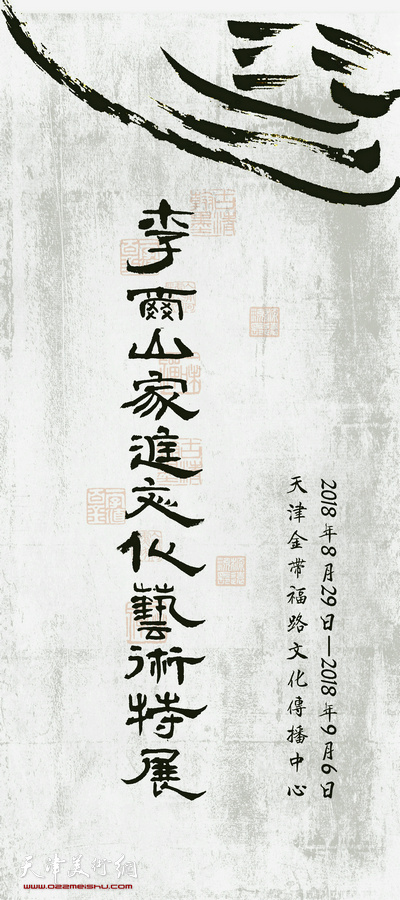 李爾山家進文化藝術特展
2018年8月29日—2018年9月6日
天津金带福路文化傳播中心
天津美术網
www.022meishu.com